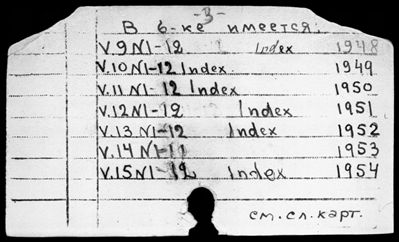 -3-
В б-ке имеется:
V.9 N1-12 Index 1948
V.10 N1-12 Index 1949
V.11 N1-12 Index 1950
V.12 N1-12 Index 1951
V.13 N1-12 Index 1952
V.14 N1-11 1953
V.15 N1-12 Index 1954
см. сл. карт.